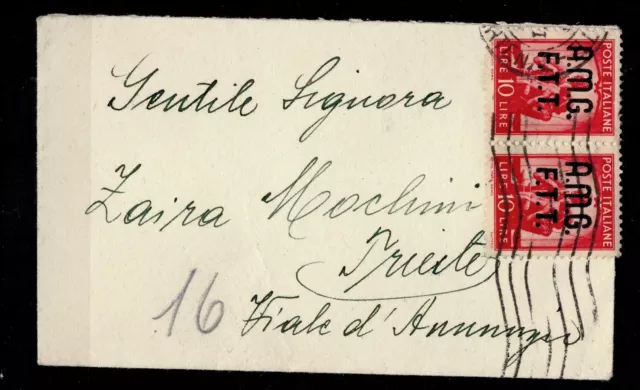 Gentile Signora
Zaira Mochini
Trieste
16
Viale d'Annunzio
POSTE ITALIANE
A.M.G.
F.T.T.
LIRE 10 LIRE
POSTE ITALIANE
A.M.G.
F.T.T.
LIRE 10 LIRE